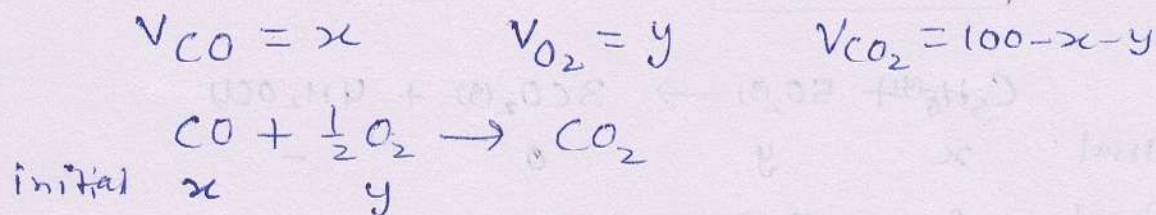 V_CO = x V_O₂ = y V_CO₂ = 100-x-y
CO + ½ O₂ → CO₂
initial x y